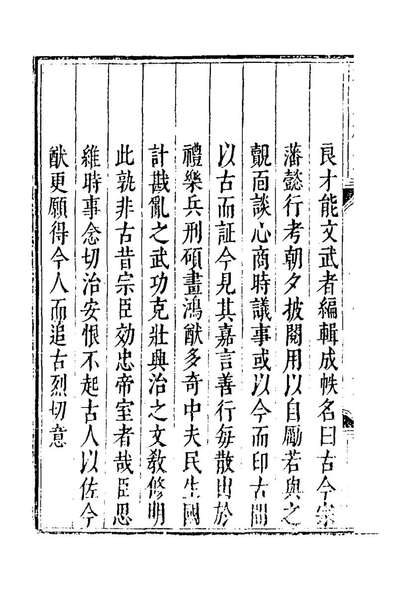 良才能文武者編輯成帙名曰古今宗
藩懿行考朝夕披閱用以自勵若與之
覿面談心商時議事或以今而印古間
以古而証今見其嘉言善行每散出於
禮樂兵刑碩畫鴻猷多奇中夫民生國
計戡亂之武功克壯興治之文教修明
此孰非古昔宗臣効忠帝室者哉臣思
維時事念切治安恨不起古人以佐今
猷更願得今人而追古烈切意